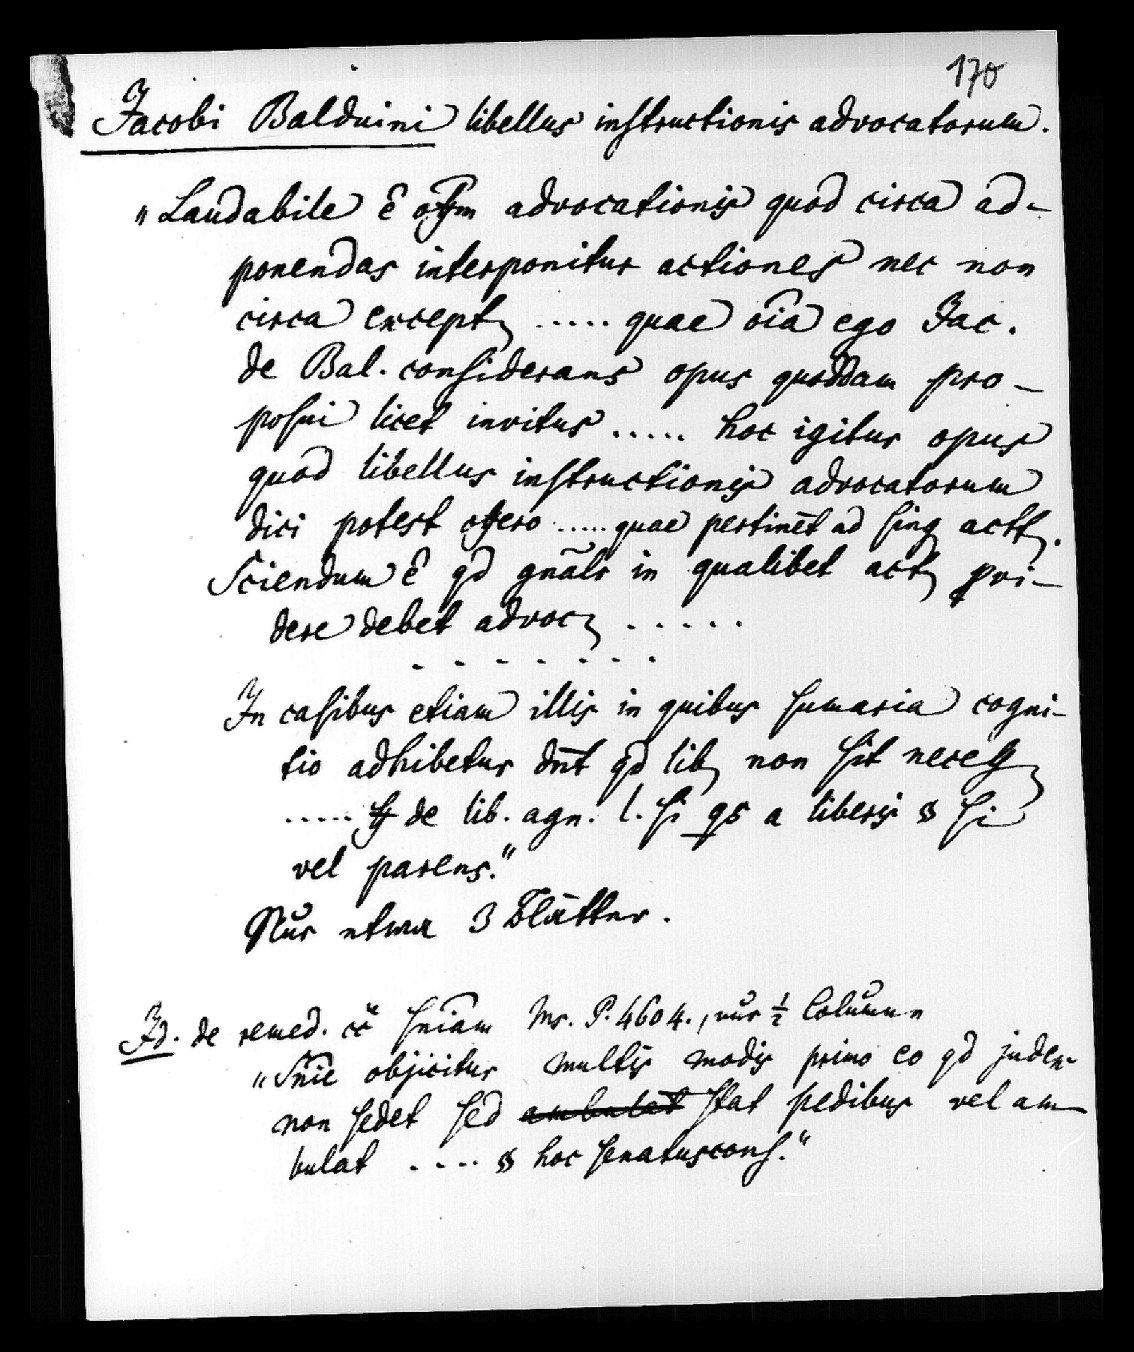 170
Jacobi Balduini libellus instructionis advocatorum.
„Laudabile ē offm advocationis quod circa ad-
ponendas interponitur actiones nec non
circa except ..... quae oīa ego Jac.
de Bal. considerans opus quoddam pro-
posui licet invitus ..... hoc igitur opus
quod libellus instructionis advocatorum
dici potest offero ..... quae pertinēt ad sing actt.
Sciendum ē qd gnālr in qualibet act pvi-
dere debet advoc .....
. . . . . . . .
In casibus etiam illis in quibus sumaria cogni-
tio adhibetur dnt qd lib non sit necess
..... ff de lib. agn. l. si qs a liberis § si
vel parens.“
Nur etwa 3 Blätter.
Id. de remed. cc̄ sniam Ms. P. 4604., nur ½ Column
„Snīe objicitur multis modis primo eo qd judex
non sedet sed ambulat stat pedibus vel am-
bulat .... § hoc senatuscons.“